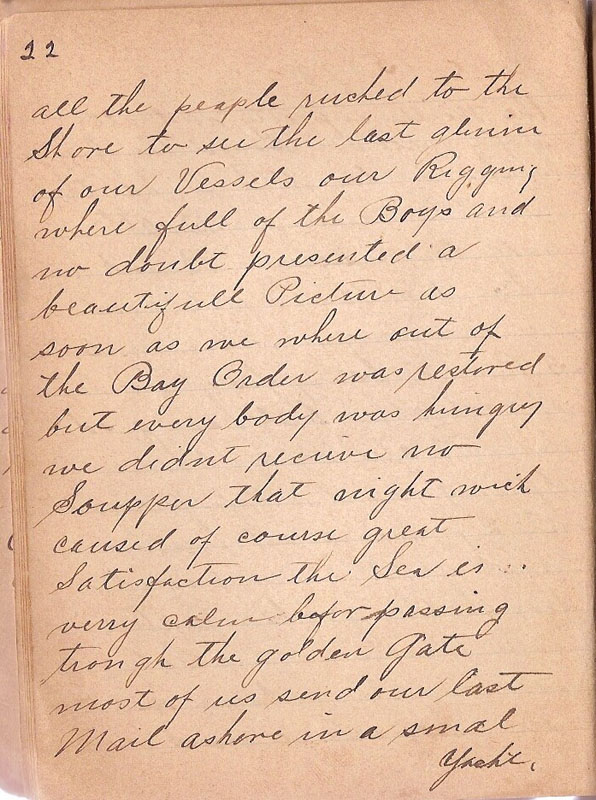 22
all the peaple ruched to the
Shore to see the last glimm
of our Vessels our Rigging
where full of the Boys and
no doubt presented a
beautifull Picture as
soon as we where out of
the Bay Order was restored
but every body was hungry
we didnt recieve no
Soupper that night wich
caused of course great
Satisfaction the Sea is
verry calm befor passing
trough the golden Gate
most of us send our last
Mail ashore in a smal
Yacht.